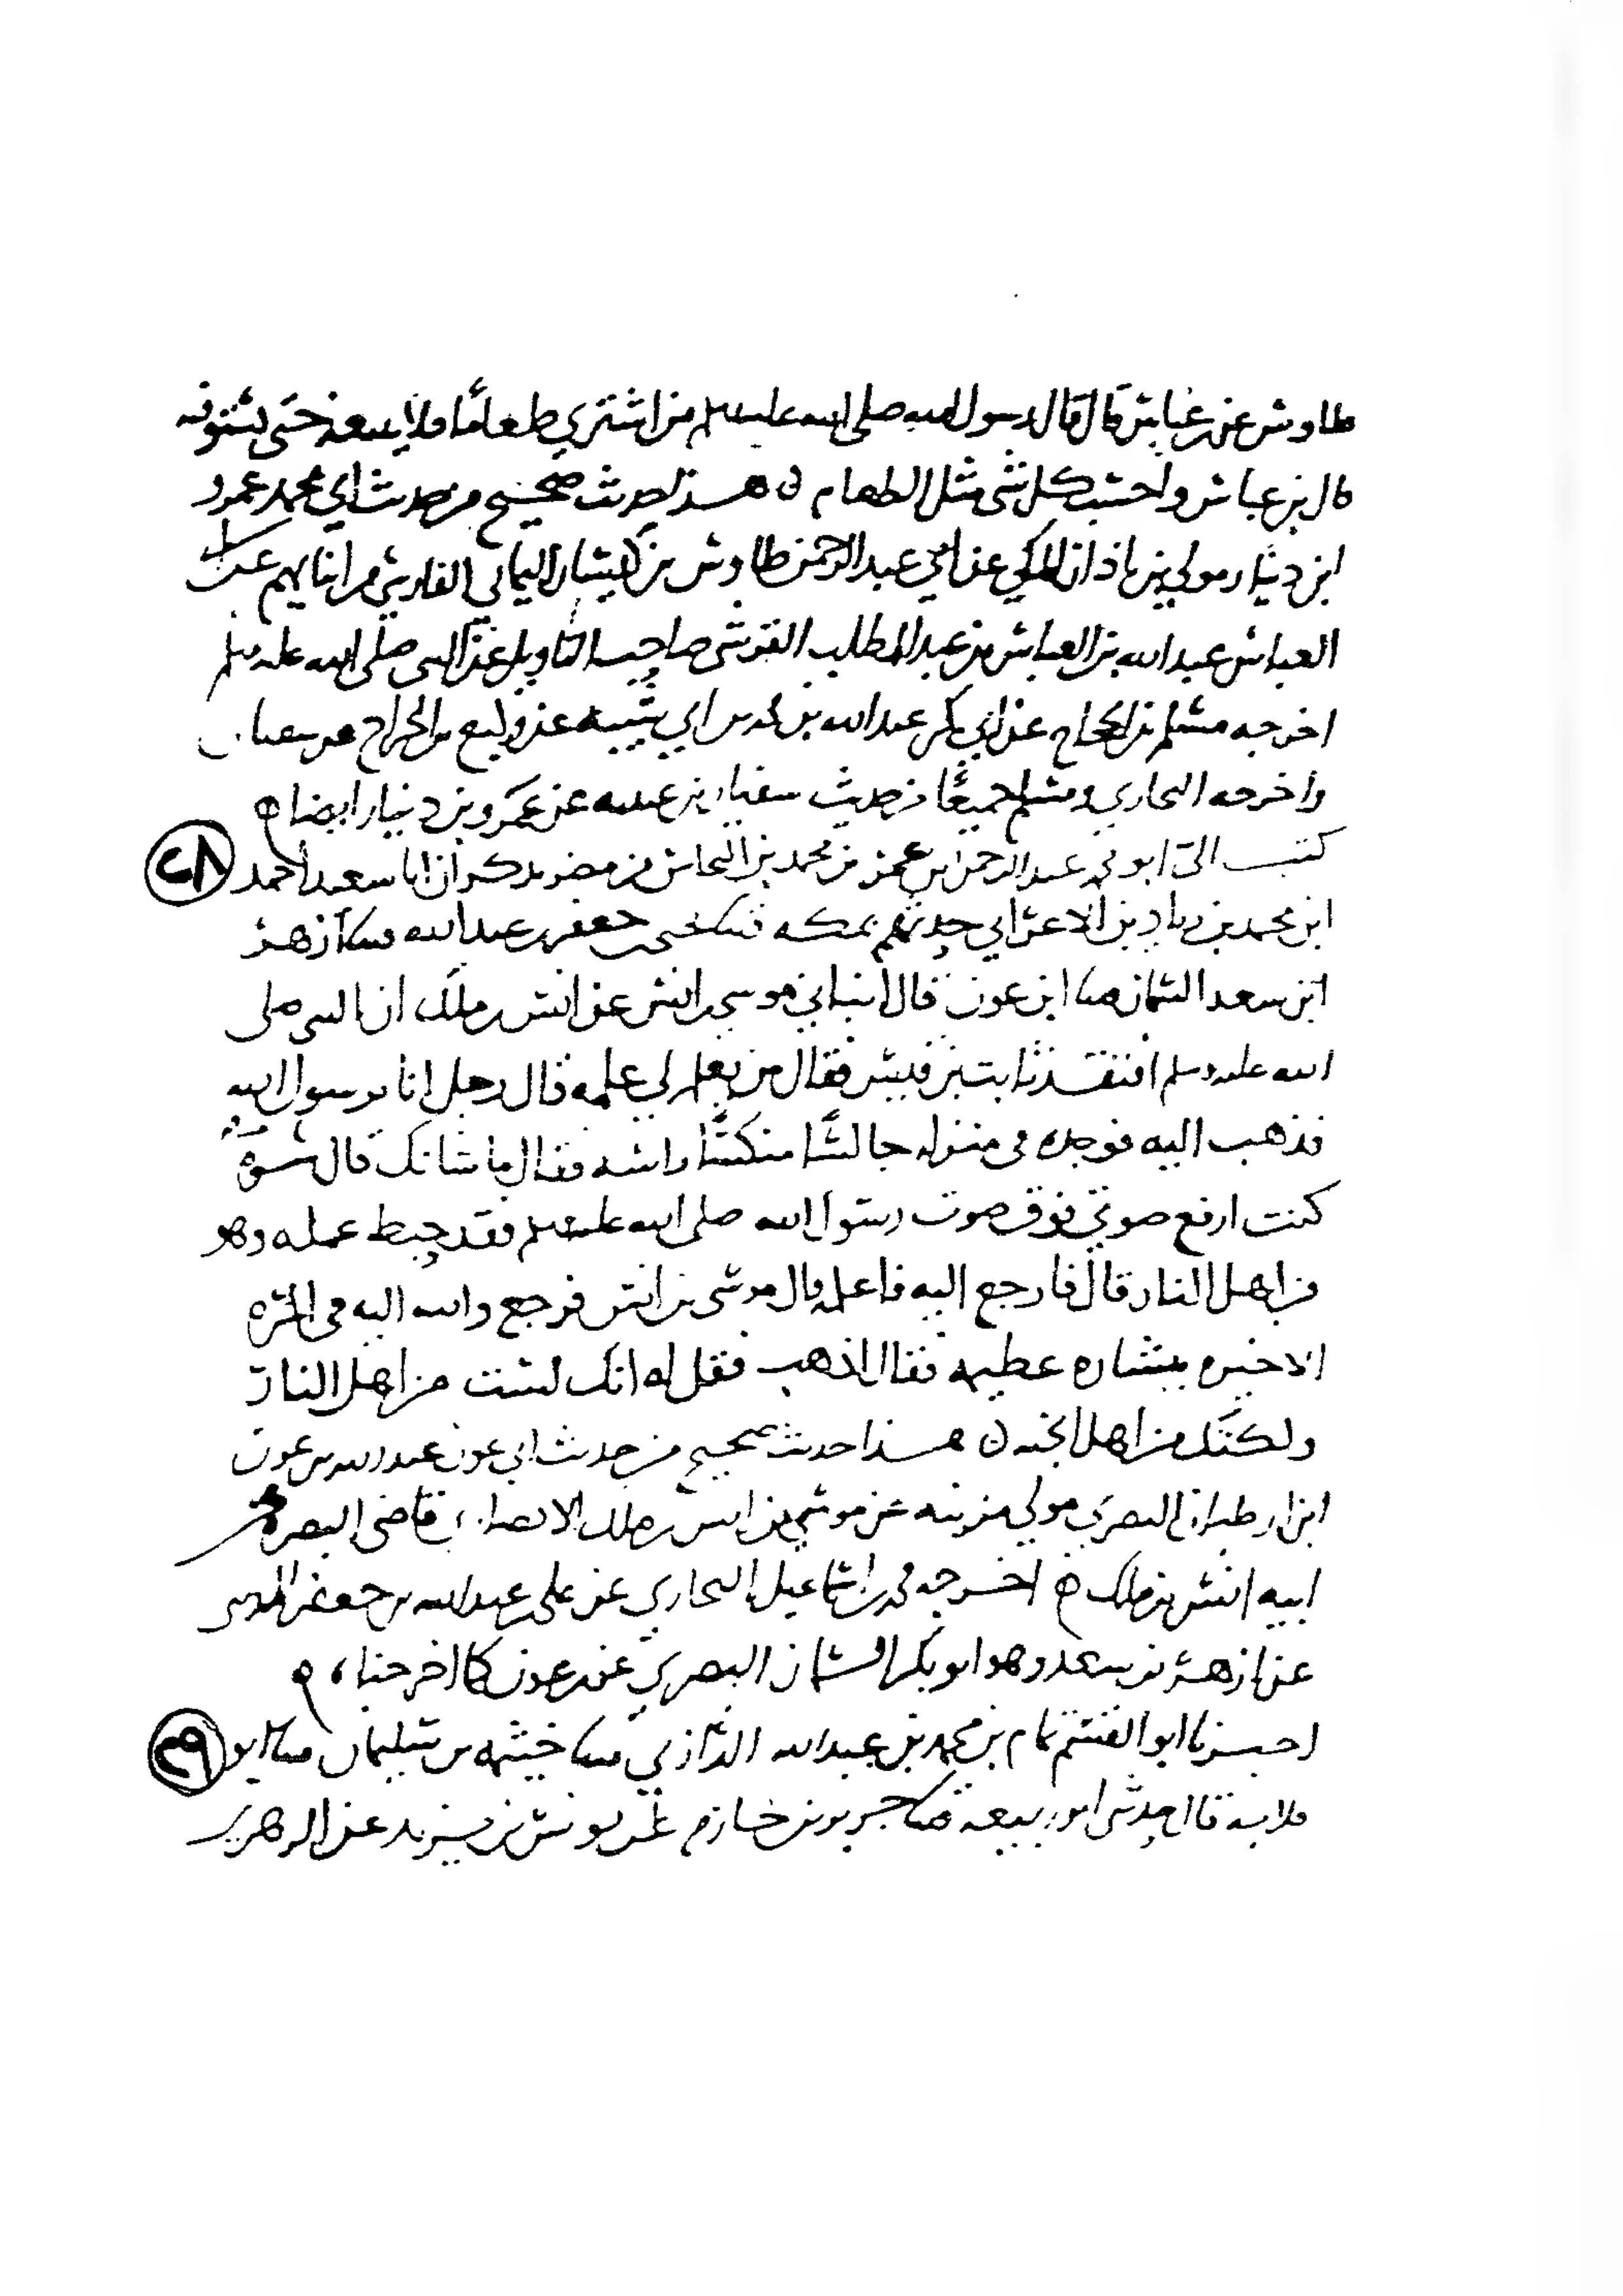 طاوس عن بن عباس قال قال رسول الله صلى الله عليه وسلم من اشترى طعاما فلا يبعه حتى يستوفيه
قال بن عباس واحسب كل شي مثل الطعام ن هذا حديث صحيح من حديث ابي محمد عمرو
ابن دينار مولى بن باذان المكي عن ابي عبد الرحمن طاوس بن كيسان اليماني الفارسي من ابنايهم عن
العباس عبد الله بن العباس بن عبد المطلب القرشي صاحب التاويل عن النبي صلى الله عليه وسلم
اخرجه مسلم بن الحجاج عن ابي بكر عبد الله بن محمد بن ابي شيبه عن وكيع بن الجراح عن سفيان
واخرجه البخاري ومسلم جميعا من حديث سفيان بن عيينه عن عمرو بن دينار ايضا ه
كتب الي ابو محمد عبد الرحمن بن عمر بن محمد بن النحاس من مصر يذكر ان ابا سعيد احمد ٢٨
ابن محمد بن زياد بن الاعرابي حدثهم بمكه جعفر بن عبد الله ازهر
ابن سعد السمان ابن عون قال انباني موسى بن انس عن انس بن ملك ان النبي صلى
الله عليه وسلم افتقد ثابت بن قيس فقال من يعلم لي علمه قال رجل انا يرسول الله
فذهب اليه فوجده في منزله جالسا منكسا راسه فقال ما شانك قال شر
كنت ارفع صوتي فوق صوت رسول الله صلى الله عليه وسلم فقد حبط عمله وهو
من اهل النار قال فارجع اليه فاعلمه قال موسى بن انس فرجع والله اليه في المره
الاخيره ببشاره عظيمه فقال اذهب فقل له انك لست من اهل النار
ولكنك من اهل الجنه ن هذا حديث صحيح من حديث ابي عون عبد الله بن عون
ابن ارطبان البصري مولى مزينه عن موسى بن انس بن ملك الانصاري قاضي البصره عن
ابيه انس بن ملك ه اخرجه محمد بن اسماعيل البخاري عن علي بن عبد الله بن جعفر المديني
عن ازهر بن سعد وهو ابو بكر السمان البصري عن بن عون كما اخرجناه ه
اخبرنا ابو القسم تمام بن محمد بن عبد الله الرازي خيثمه بن سليمان ابو ٢٩
قلابه قال حدثني ابو ربيعه جرير بن حازم عن يونس بن يزيد عن الزهري